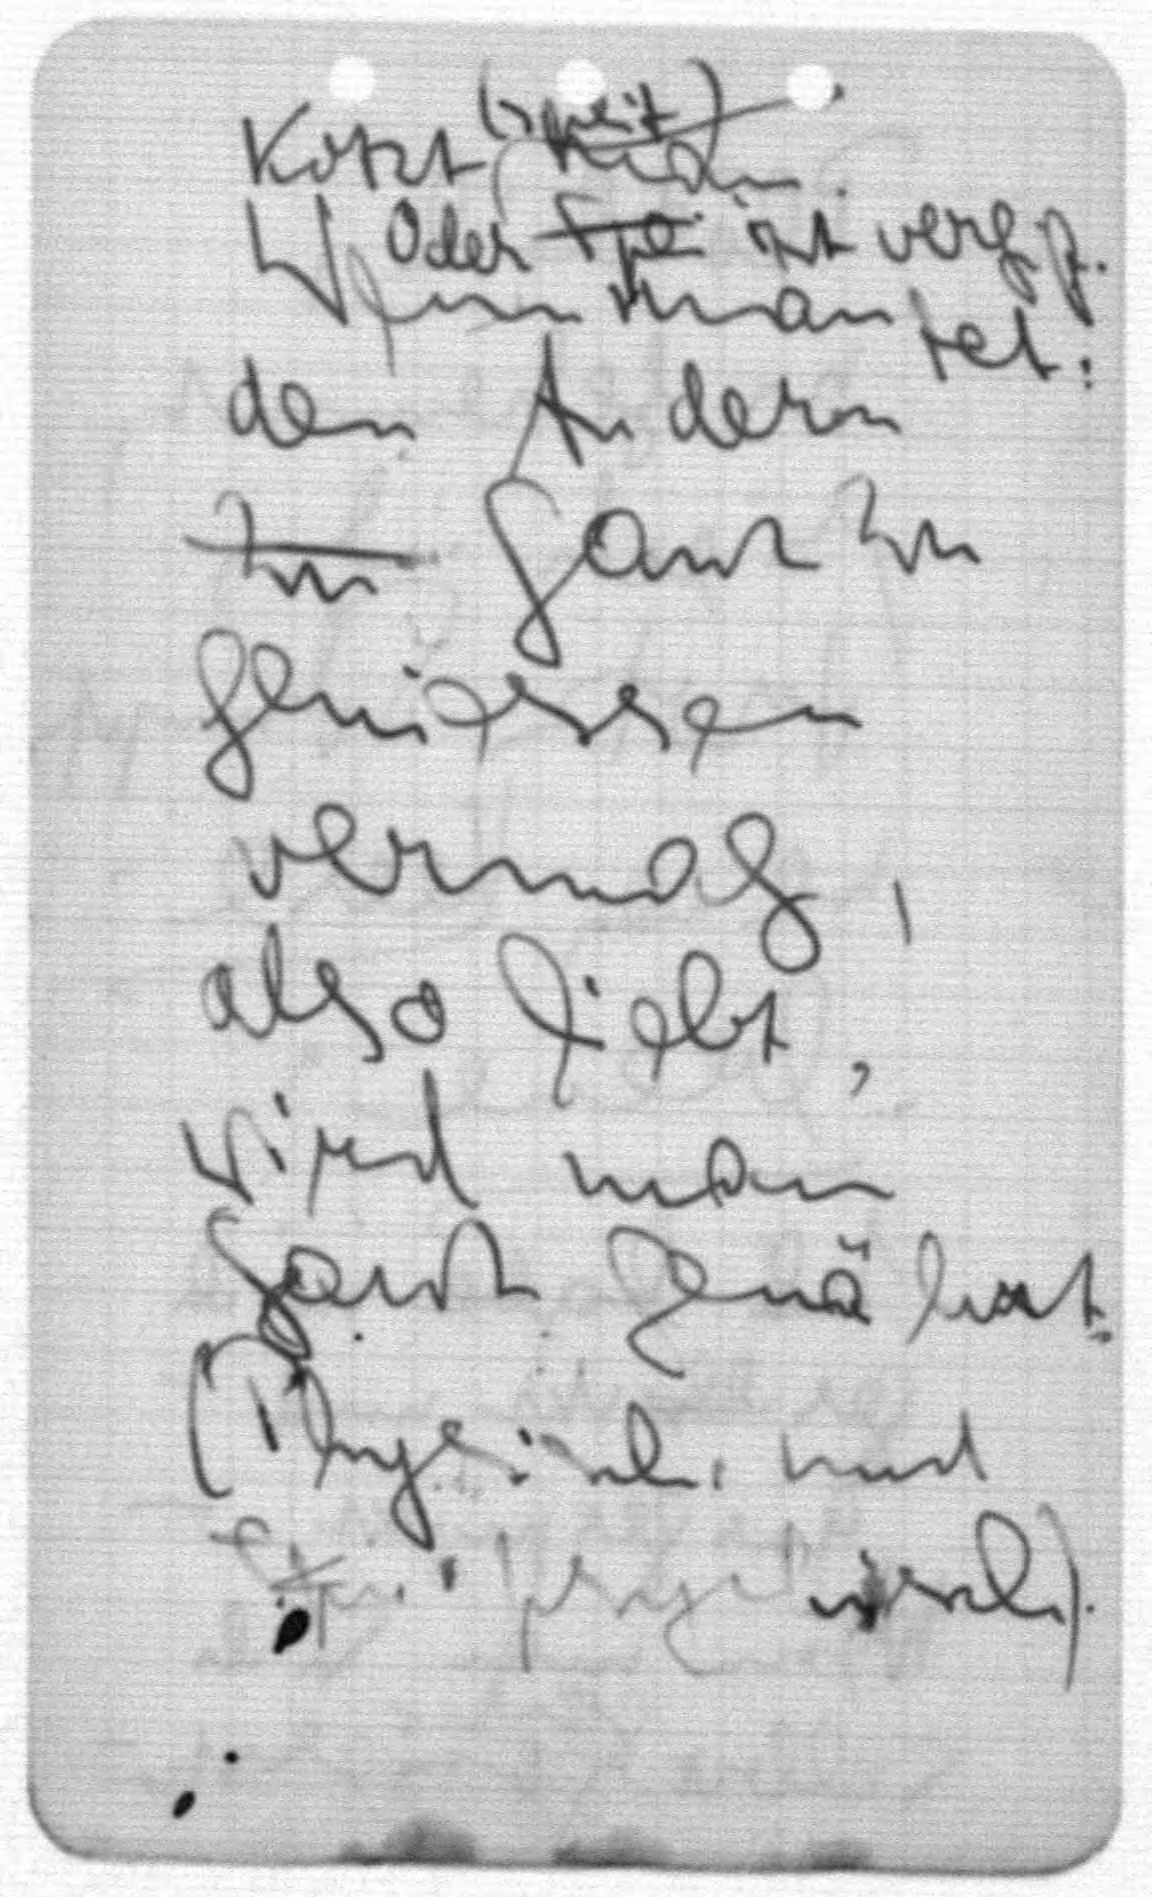 Kotzt (speit)
Oder ist vergif-
Wenn man tet:
den Andern
zu ganz zu
geniessen
vermag,
also liebt,
wird man
ganz genährt.
(Physisch. und
psychisch).